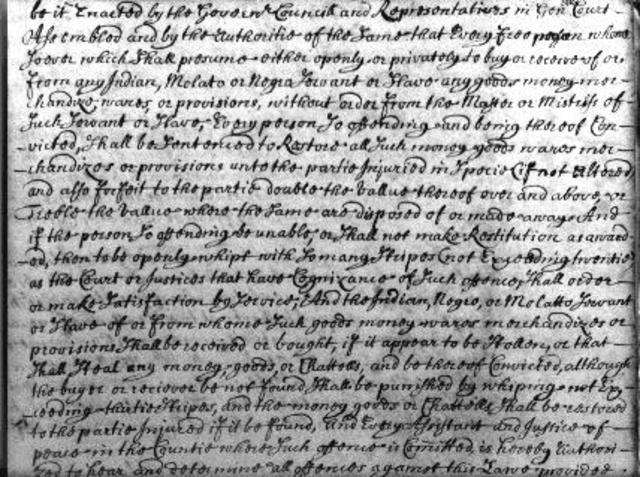 be it Enacted by the Governr Councill and Representatives in Genll Court
Assembled and by the Authoritie of the Same that Every free person whom
soever which shall presume either openly or privately to buy or receive of or
from any Indian, Molato or Negro servant or slave any goods money mer-
chandize wares, or provisions, without order from the Master or Mistriss of
such servant or slave, Every person so offending and being thereof Con-
victed, shall be sentenced to Restore all such money goods wares mer-
chandizes or provisions unto the partie Injured in specie (if not altered)
and also forfeit to the partie double the vallue thereof over and above, or
Treble the vallue where the same are disposed of or made away. And
if the person so offending be unable or shall not make Restitution as award-
ed, then to be openly whipt with so many stripes (not Exceeding twentie)
as the Court or Justices that have Cognizance of such offence, shall order
or make satisfaction by service; And the Indian, Negro, or Molatto servant
or slave of or from whome such goods money wares merchandizes or
provisions shall be received or bought, if it appear to be stollen, or that
shall steal any money, goods, or Chattells, and be thereof Convicted, although
the buyer or reciever be not found, shall be punished by whiping not Ex-
ceeding thirtie stripes, and the money goods or Chattells shall be restored
to the partie Injured if it be found, And Every Assistant and Justice of
peace in the Countie where such offence is Comitted, is hereby Authori-
zed to hear and determine all offences against this Lawe provided